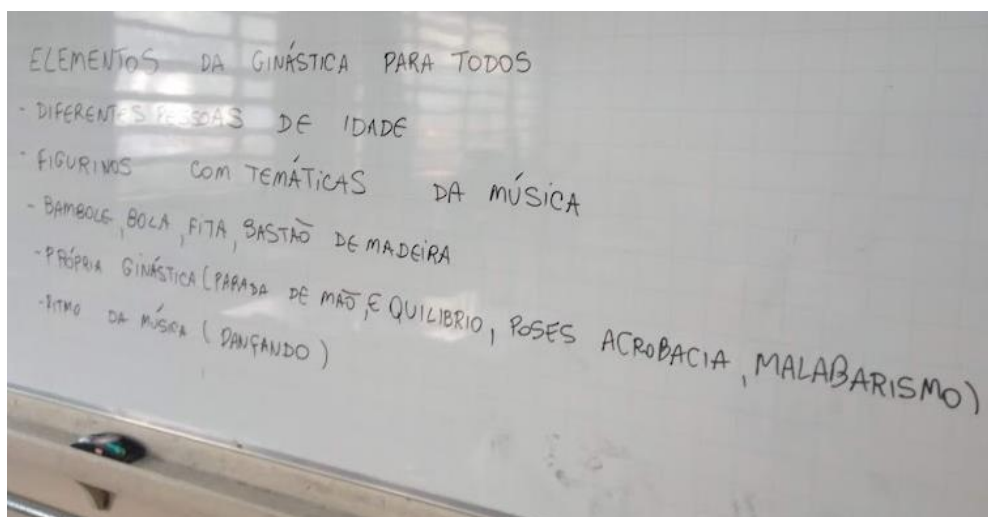 ELEMENTOS DA GINÁSTICA PARA TODOS
- DIFERENTES PESSOAS DE IDADE
- FIGURINOS COM TEMÁTICAS DA MÚSICA
- BAMBOLE, BOLA, FITA, BASTÃO DE MADEIRA
- PRÓPRIA GINÁSTICA (PARADA DE MÃO, EQUILIBRIO, POSES ACROBACIA, MALABARISMO)
- RITMO DA MÚSICA (DANÇANDO)